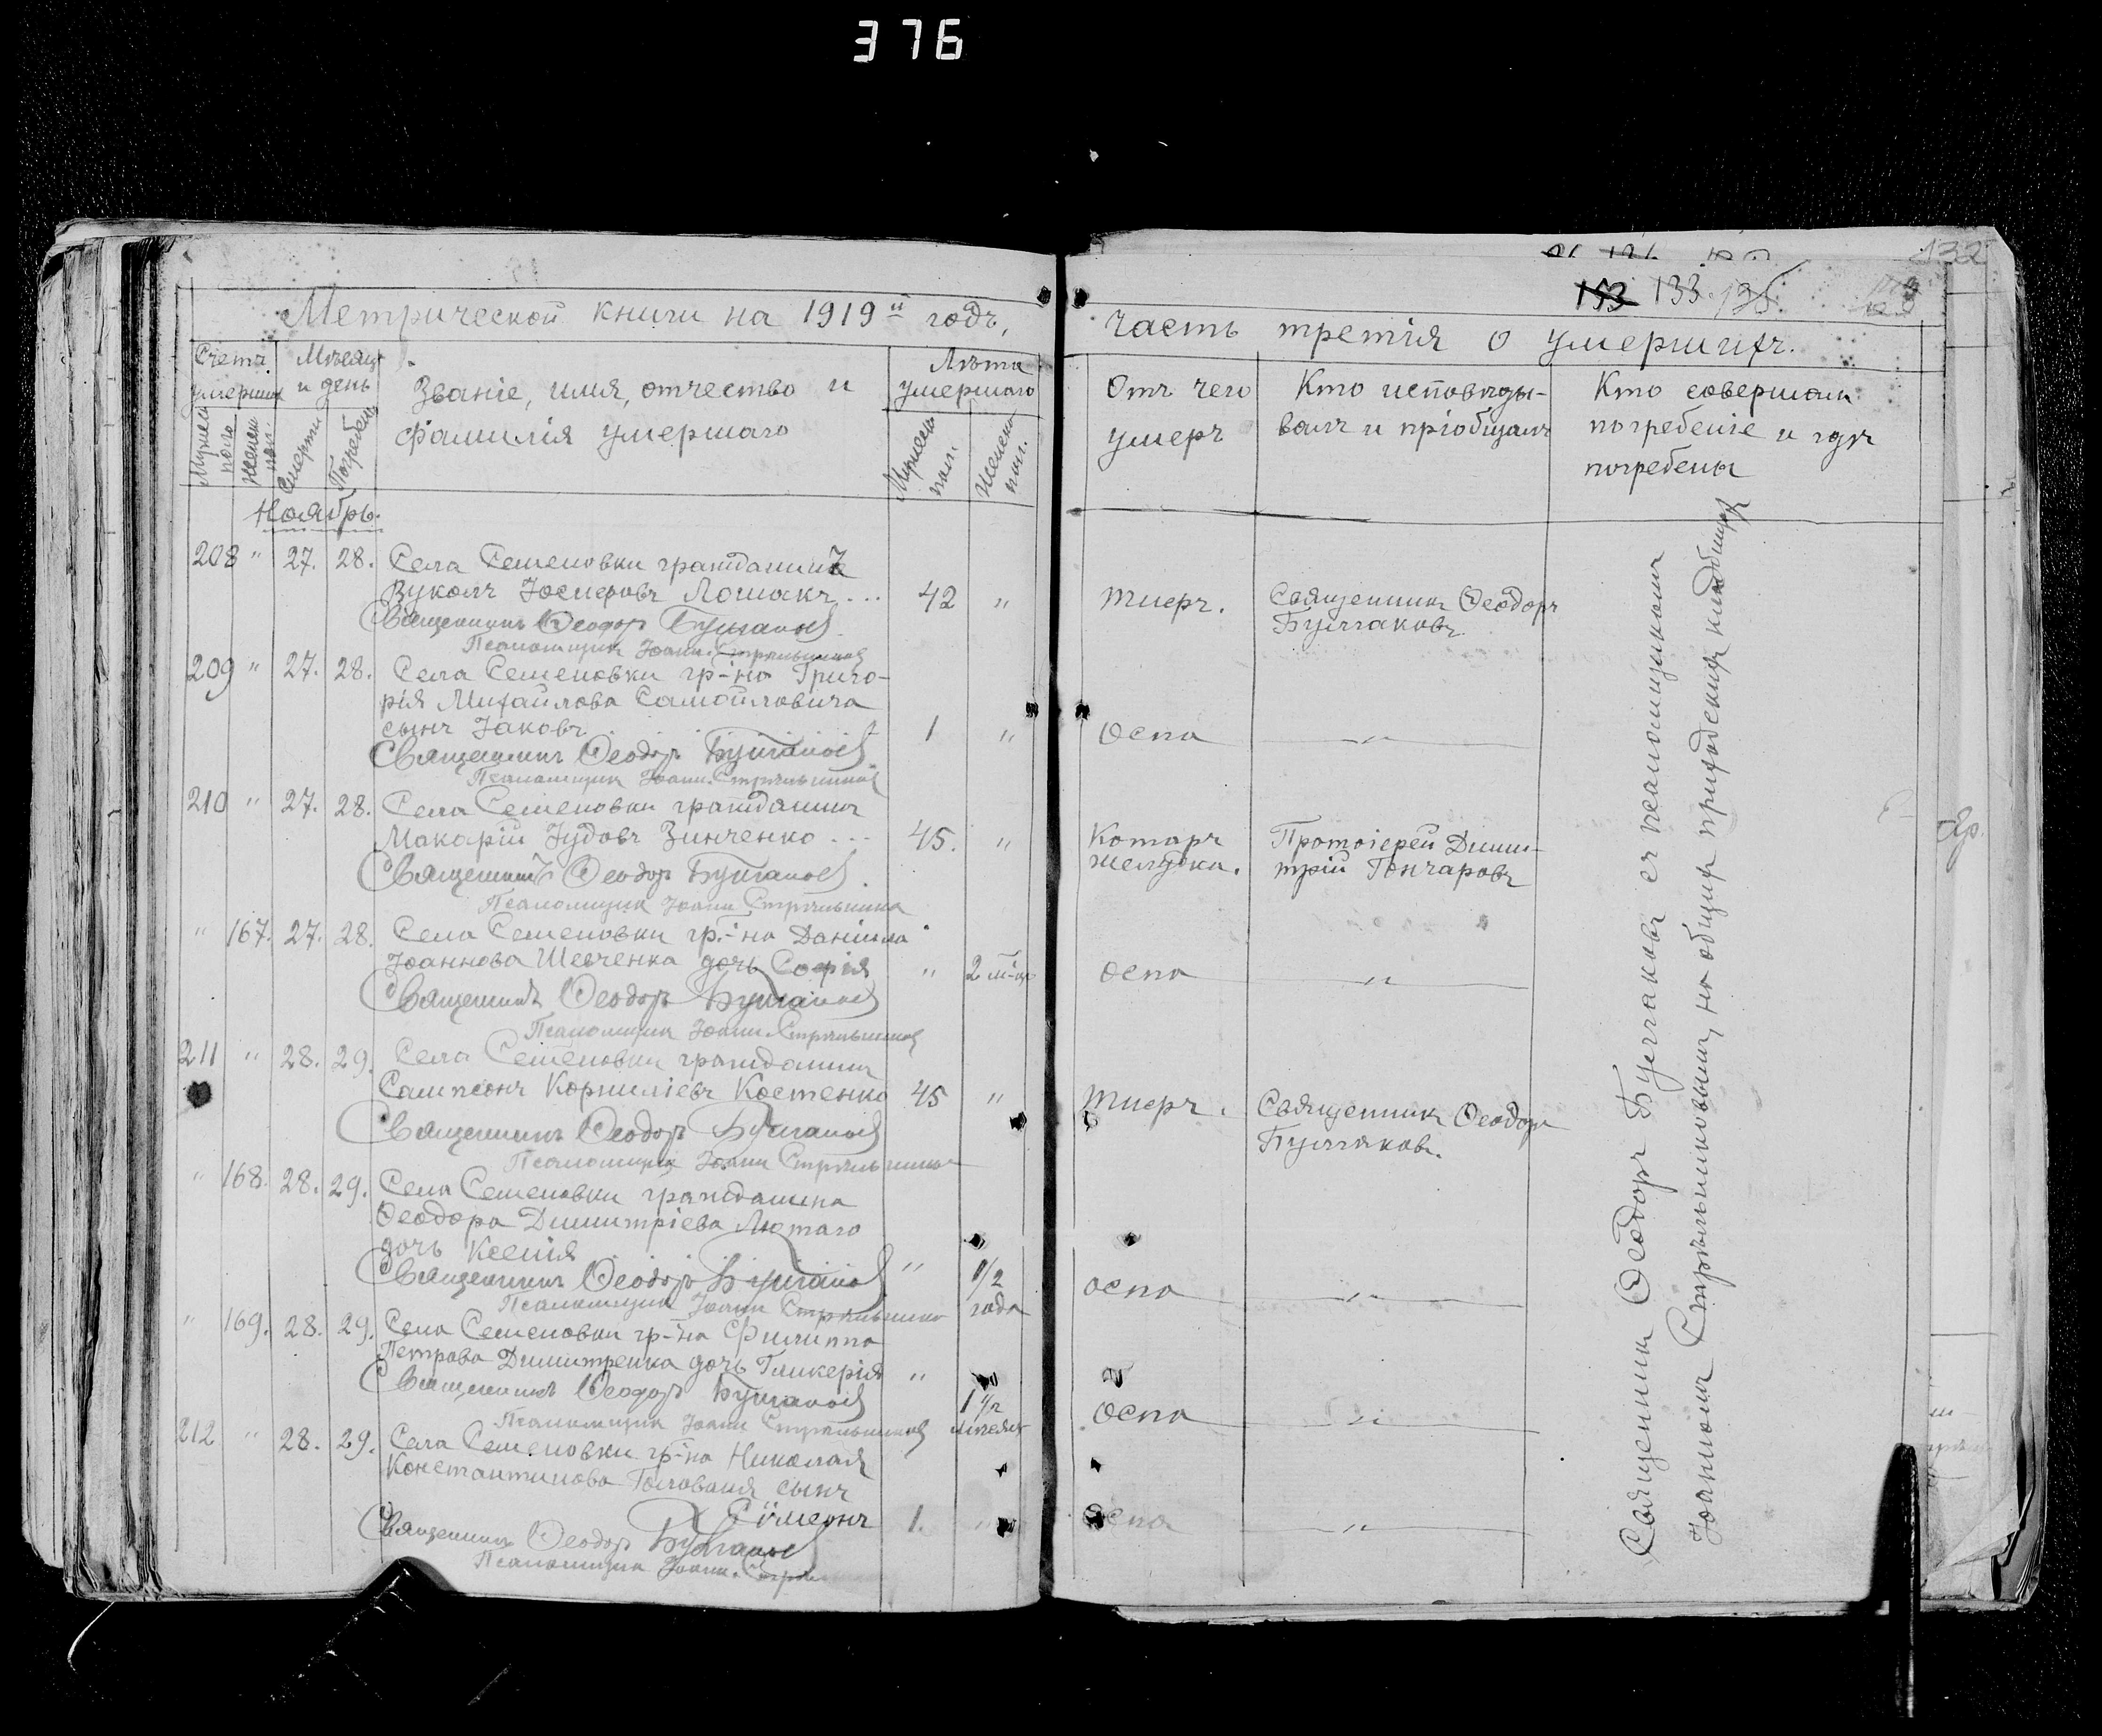 376
132
153 133 135
Метрической книги на 1919й годъ,
Счетъ умершихъ
Мѣсяцъ и день
Званіе, имя, отчество и
фамилія умершаго
Лѣта
умершаго
Мужеск. пола
Женск. пол.
Смерти
Погребен.
Мужеск. пол.
Женск. пол.
Ноябрь.
208 " 27. 28. Села Семеновки гражданинъ
Вуколъ Іосифовъ Лошакъ ... 42 "
Священникъ Ѳеодоръ Булгаковъ
Псаломщикъ Іоаннъ Стрѣльниковъ
209 " 27. 28. Села Семеновки гр-на Григо-
рія Михайлова Самойловича
сынъ Іаковъ 1 "
Священникъ Ѳеодоръ Булгаковъ
Псаломщикъ Іоаннъ Стрѣльниковъ
210 " 27. 28. Села Семеновки гражданинъ
Макарій Іудовъ Зинченко ... 45. "
Священникъ Ѳеодоръ Булгаковъ
Псаломщикъ Іоаннъ Стрѣльников
" 167. 27. 28. Села Семеновки гр-на Даніила
Іоаннова Шевченка дочь Софія " 2 м-ца
Священникъ Ѳеодоръ Булгаковъ
Псаломщикъ Іоаннъ Стрѣльниковъ
211 " 28. 29. Села Семеновки гражданинъ
Сампсонъ Корниліевъ Костенко 45 "
Священникъ Ѳеодоръ Булгаковъ
Псаломщикъ Іоаннъ Стрѣльников
" 168. 28. 29. Села Семеновки гражданина
Ѳеодора Димитріева Лютаго
дочь Ксенія " 1/2
Священникъ Ѳеодоръ Булгаковъ
Псаломщикъ Іоаннъ Стрѣльников года
" 169. 28. 29. Села Семеновки гр-на Филиппа
Петрова Димитренка дочь Гликерія "
Священникъ Ѳеодоръ Булгаковъ 1 1/2
Псаломщикъ Іоаннъ Стрѣльниковъ мѣсяца
212 " 28. 29. Села Семеновки гр-на Николая
Константинова Голованя сынъ
Сѵмеонъ 1. "
Священникъ Ѳеодоръ Булгаковъ
Псаломщикъ Іоаннъ Стрѣл
часть третія о умершихъ.
Отъ чего
умеръ
Кто исповѣды-
валъ и пріобщалъ
Кто совершалъ
погребеніе и гдѣ
погребены
Жиеръ. Священникъ Ѳеодоръ
Булгаковъ.
Оспа "
Катаръ
желудка.
Протоіерей Дими-
трій Гончаровъ
Оспа "
Жиеръ. Священникъ Ѳеодоръ
Булгаковъ.
Оспа "
Оспа "
Оспа "
Священникъ Ѳеодоръ Булгаковъ съ псаломщикомъ
Іоанномъ Стрѣльниковымъ, на общемъ приходскомъ кладбищѣ